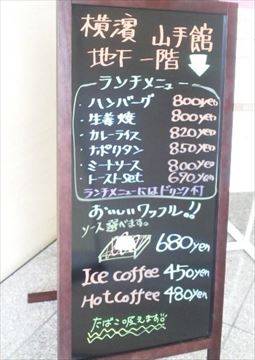 横濱 山手館
地下一階
ランチメニュー
・ハンバーグ 800yen
・生姜焼 800yen
・カレーライス 820yen
・ナポリタン 850yen
・ミートソース 800yen
・トーストSet 690yen
ランチメニューにはドリンク付
おいしいワッフル!!
ソース選べます。
680yen
Ice coffee 450yen
Hot coffee 480yen
たばこ吸えます